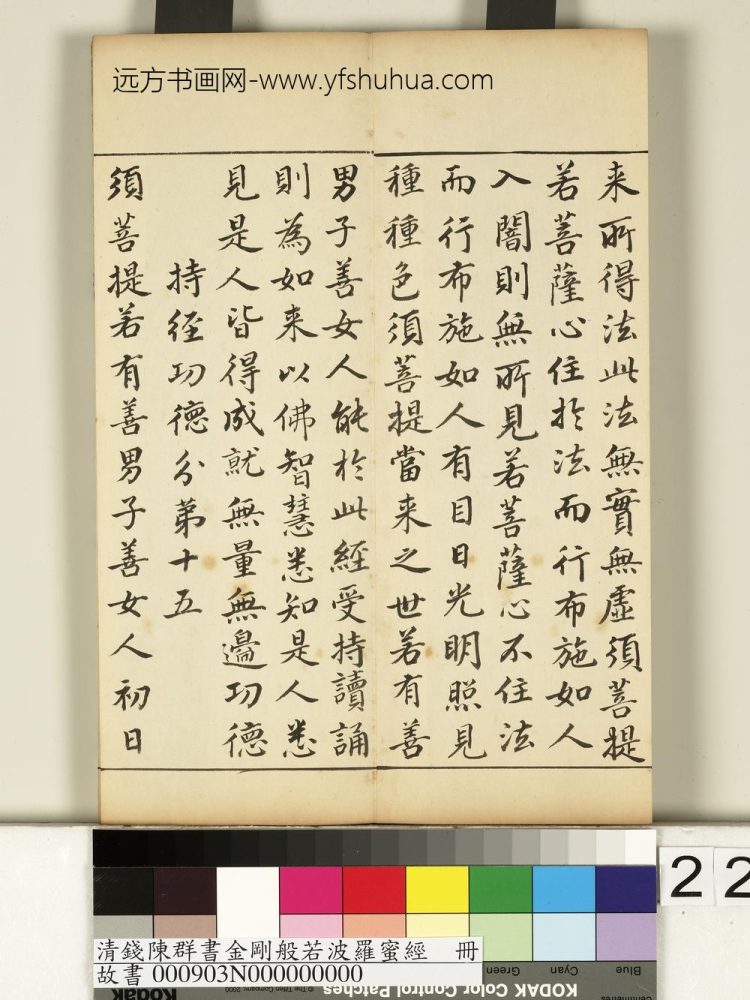 远方书画网-www.yfshuhua.com
来所得法此法無實無虛須菩提
若菩薩心住於法而行布施如人
入闇則無所見若菩薩心不住法
而行布施如人有目日光明照見
種種色須菩提當来之世若有善
男子善女人能於此經受持讀誦
則為如来以佛智慧悉知是人悉
見是人皆得成就無量無邊功德
持經功德分第十五
須菩提若有善男子善女人初日
22
清錢陳群書金剛般若波羅蜜經 冊
故書 000903N000000000
Blue Cyan Green
KODAK Color Control Patches
Kodak